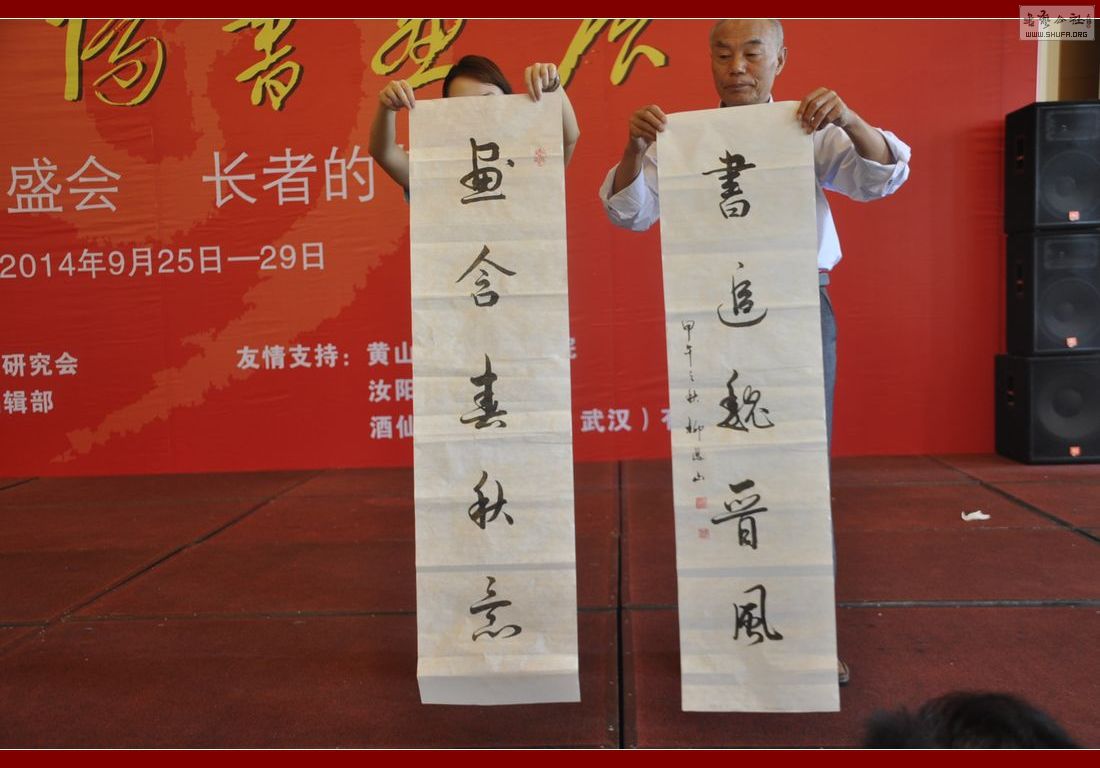 書艺公社
WWW.SHUFA.ORG
書画展
盛会 长者的
2014年9月25日—29日
研究会
辑部
友情支持：黄山
汝阳
酒仙
武汉）
畫含春秋意
書追魏晋風
甲午之秋 柳